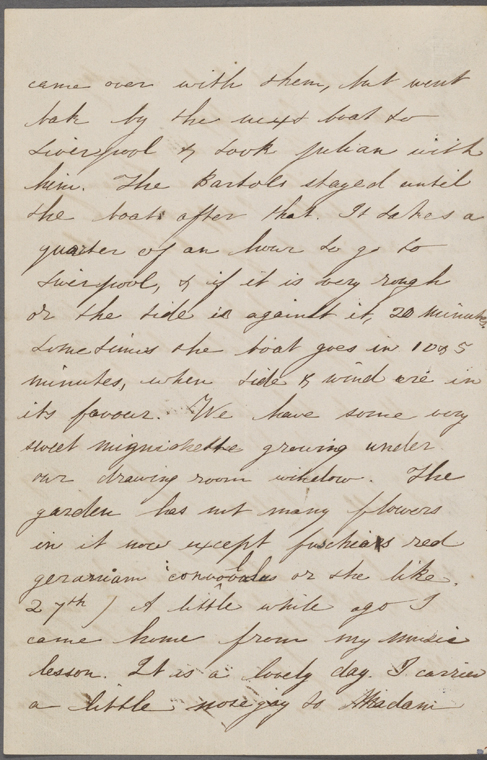 came over with them, but went
bak by the next boat to
Liverpool & took Julian with
him. The Bartols stayed until
the boat after that. It takes a
quarter of an hour to go to
Liverpool, & if it is very rough
or the tide is against it, 20 minutes
sometimes the boat goes in 10 or 5
minutes, when tide & wind are in
its favour. We have some very
sweet mignionette growing under
our drawing room window. The
garden has not many flowers
in it now except fuschias red
geraniam convovulus or the like.
27th) A little while ago I
came home from my music
lesson. It is a lovely day. I carried
a little nosegay to Madam